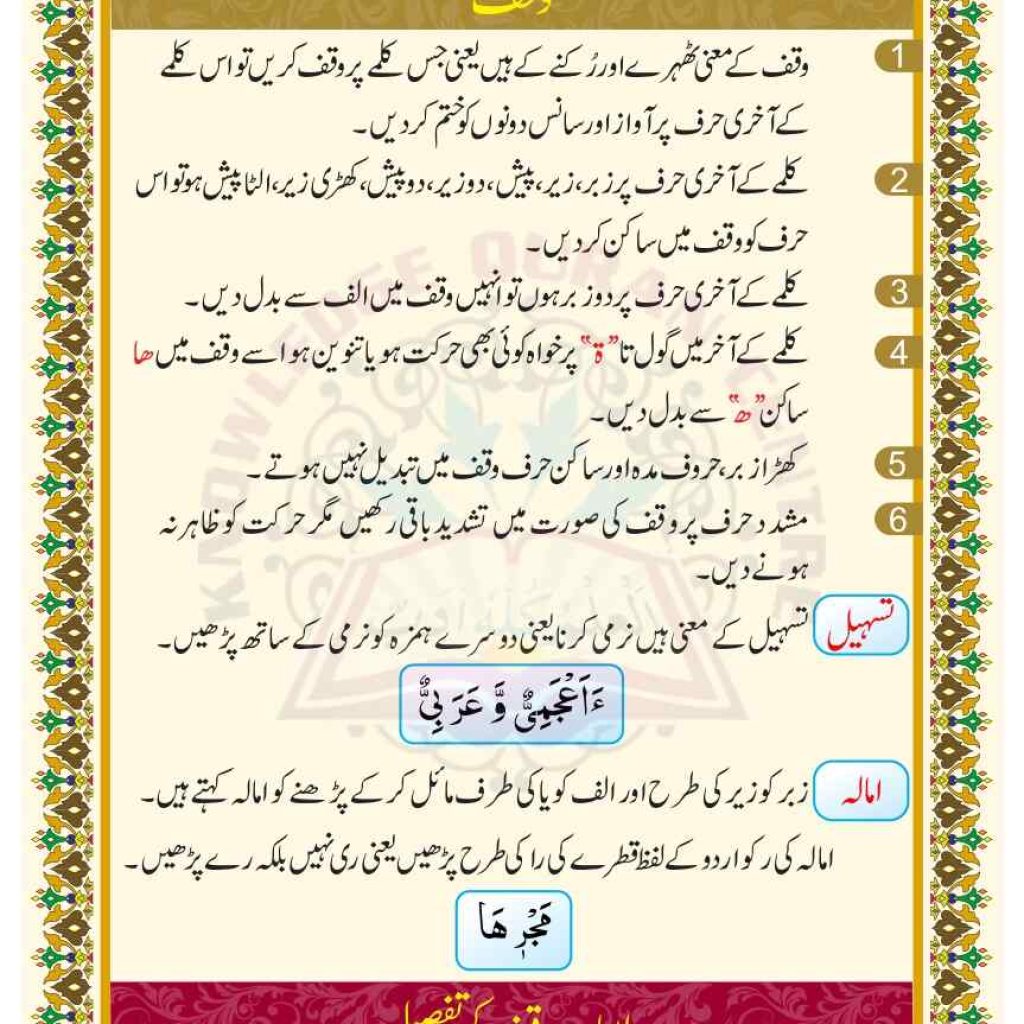 وقف
1 وقف کے معنی ٹھہرے اور رُکنے کے ہیں یعنی جس کلمے پر وقف کریں تو اس کلمے
کے آخری حرف پر آواز اور سانس دونوں کو ختم کر دیں۔
2 کلمے کے آخری حرف پر زبر، زیر، پیش، دو زیر، دو پیش، کھڑی زیر، الٹا پیش ہو تو اس
حرف کو وقف میں ساکن کر دیں۔
3 کلمے کے آخری حرف پر دو زبر ہوں تو انہیں وقف میں الف سے بدل دیں۔
4 کلمے کے آخر میں گول تا ”ة“ پر خواہ کوئی بھی حرکت ہو یا تنوین ہو اسے وقف میں ھا
ساکن ”ھ“ سے بدل دیں۔
5 کھڑا زبر، حروف مدہ اور ساکن حرف وقف میں تبدیل نہیں ہوتے۔
6 مشدد حرف پر وقف کی صورت میں تشدید باقی رکھیں مگر حرکت کو ظاہر نہ
ہونے دیں۔
تسہیل تسہیل کے معنی ہیں نرمی کرنا یعنی دوسرے ہمزہ کو نرمی کے ساتھ پڑھیں۔
ءَاَعْجَمِیٌّ وَّ عَرَبِیٌّ
امالہ زبر کو زیر کی طرح اور الف کو یا کی طرف مائل کر کے پڑھنے کو امالہ کہتے ہیں۔
امالہ کی ر کو اردو کے لفظ قطرے کی را کی طرح پڑھیں یعنی ری نہیں بلکہ رے پڑھیں۔
مَجْرٖىهَا
وقف کی تفصیل
KNOWLEDGE QURANIC CENTRE